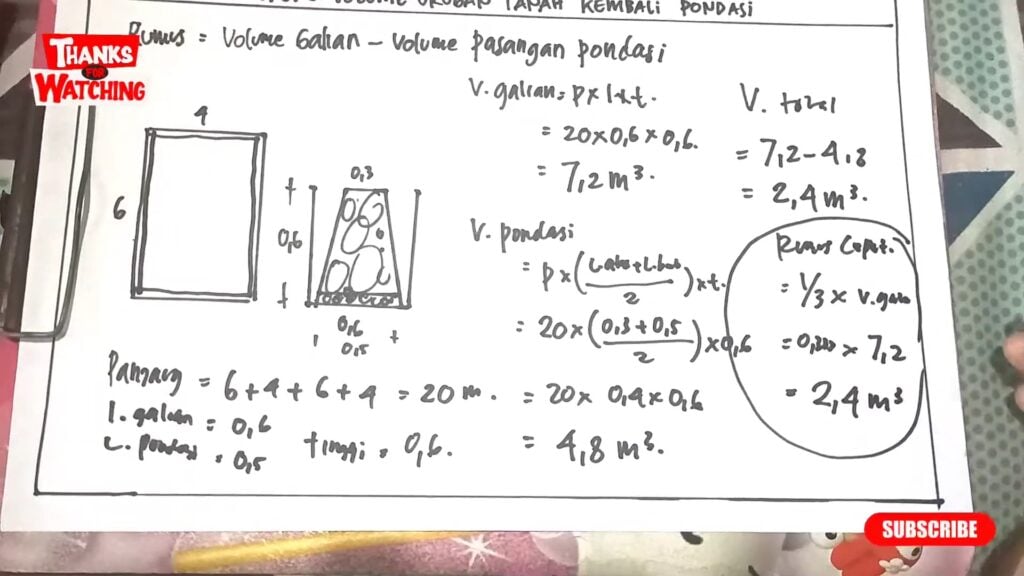 VOLUME URUGAN TANAH KEMBALI PONDASI
Rumus = Volume Galian - Volume pasangan pondasi
THANKS
FOR
WATCHING
4
6
0,3
0,6
0,6
0,5
V. galian = p x l x t.
= 20 x 0,6 x 0,6.
= 7,2 m³.
V. total
= 7,2 - 4,8
= 2,4 m³.
V. pondasi
= p x (L atas + L. bwh / 2) x t.
= 20 x (0,3 + 0,5 / 2) x 0,6
= 20 x 0,4 x 0,6
= 4,8 m³.
Rumus Cepat.
= 1/3 x V. galian
= 0,333 x 7,2
= 2,4 m³
Panjang = 6 + 4 + 6 + 4 = 20 m.
l. galian = 0,6
L. pondasi = 0,5
tinggi = 0,6.
SUBSCRIBE